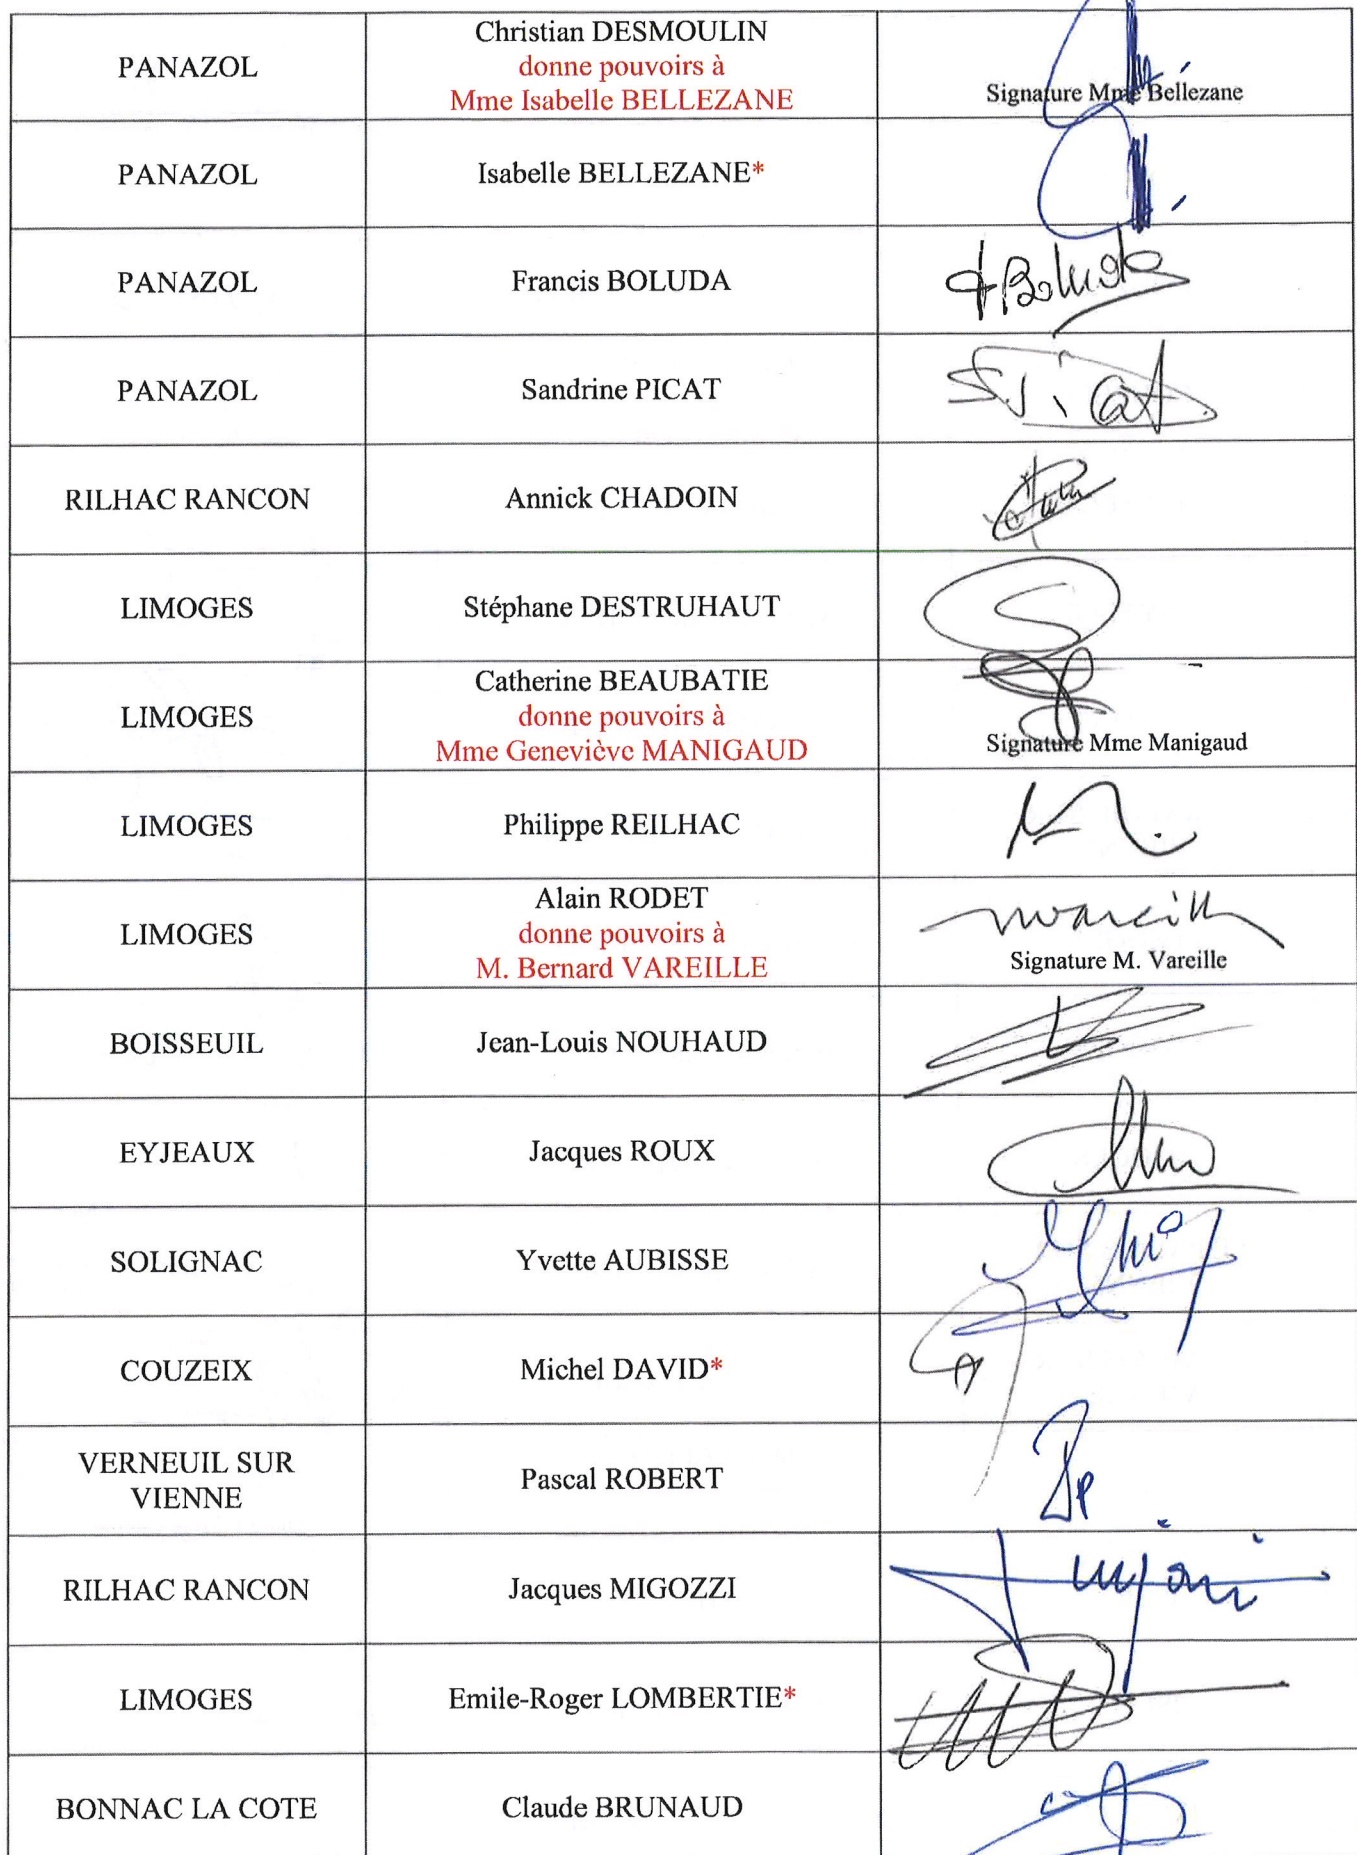 PANAZOL
Christian DESMOULIN
donne pouvoirs à
Mme Isabelle BELLEZANE
Signature Mme Bellezane
PANAZOL
Isabelle BELLEZANE*
PANAZOL
Francis BOLUDA
Boluda
PANAZOL
Sandrine PICAT
RILHAC RANCON
Annick CHADOIN
LIMOGES
Stéphane DESTRUHAUT
LIMOGES
Catherine BEAUBATIE
donne pouvoirs à
Mme Geneviève MANIGAUD
Signature Mme Manigaud
LIMOGES
Philippe REILHAC
LIMOGES
Alain RODET
donne pouvoirs à
M. Bernard VAREILLE
Signature M. Vareille
BOISSEUIL
Jean-Louis NOUHAUD
EYJEAUX
Jacques ROUX
SOLIGNAC
Yvette AUBISSE
COUZEIX
Michel DAVID*
VERNEUIL SUR
VIENNE
Pascal ROBERT
RILHAC RANCON
Jacques MIGOZZI
LIMOGES
Emile-Roger LOMBERTIE*
BONNAC LA COTE
Claude BRUNAUD